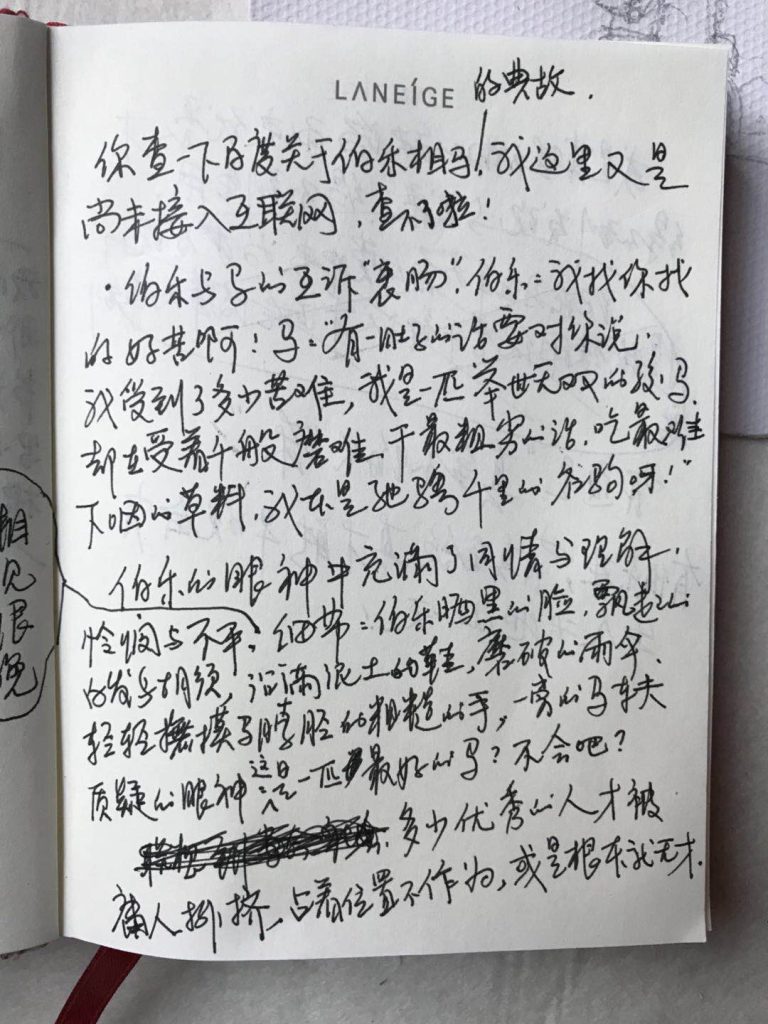 LANEÍGE 的典故.
你查一下百度关于伯乐相马!我这里又是
尚未接入互联网,查不了啦!
·伯乐与马的互诉"衷肠".伯乐:我找你找
的好苦啊!马:"有一肚子的话要对你说.
我受到了多少苦难,我是一匹举世无双的骏马.
却在受着千般磨难.干最粗劣的活.吃最难
下咽的草料,我本是驰骋千里的名驹呀!"
伯乐的眼神中充满了同情与理解.
怜悯与不平.细节:伯乐晒黑的脸.飘起的
的发与胡须,沾满泥土的鞋,磨破的雨伞.
轻轻抚摸马脖胫的粗糙的手,一旁的马车夫
质疑的眼神 这是一匹最好的马?不会吧?
多少优秀的人才被
庸人排挤,占着位置不作为,或是根本就无才.
相
见
恨
晚